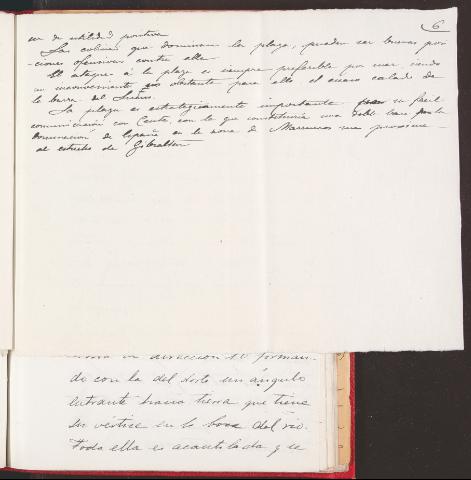 6
ser de utilidad positiva
Las colinas que dominan la plaza, pueden ser buenas posi-
-ciones ofensivas contra ella.
El ataque á la plaza es siempre preferible por mar, siendo
un inconveniente no obstante para ello el escaso calado de
la barra del
La plaza es estratégicamente importante su fácil
comunicación con Ceuta, con la que constituiría una doble base para la
dominación de España en la zona de Marruecos mas próxima
al estrecho de Gibraltar
en dirección forman-
do con la del Norte un ángulo
entrante hacia tierra que tiene
su vértice en la boca del río.
Toda ella es acantilada y se